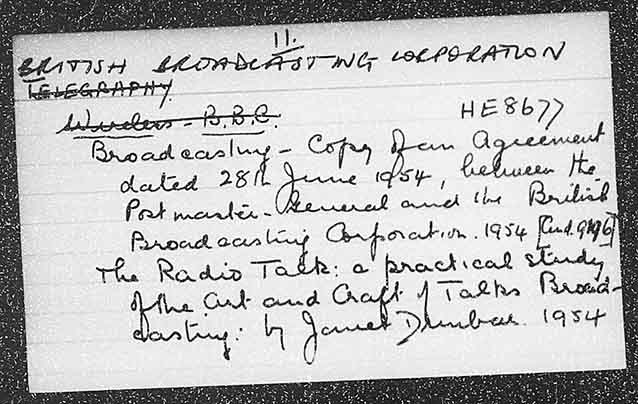 11.
BRITISH BROADCASTING CORPORATION
TELEGRAPHY
Wireless - B.B.C.
HE8677
Broadcasting - Copy of an Agreement
dated 28th June 1954, between the
Postmaster-General and the British
Broadcasting Corporation. 1954 [Cmd. 9196]
The Radio Talk: a practical study
of the Art and Craft of Talks Broad-
casting: by Janet Dunbar. 1954